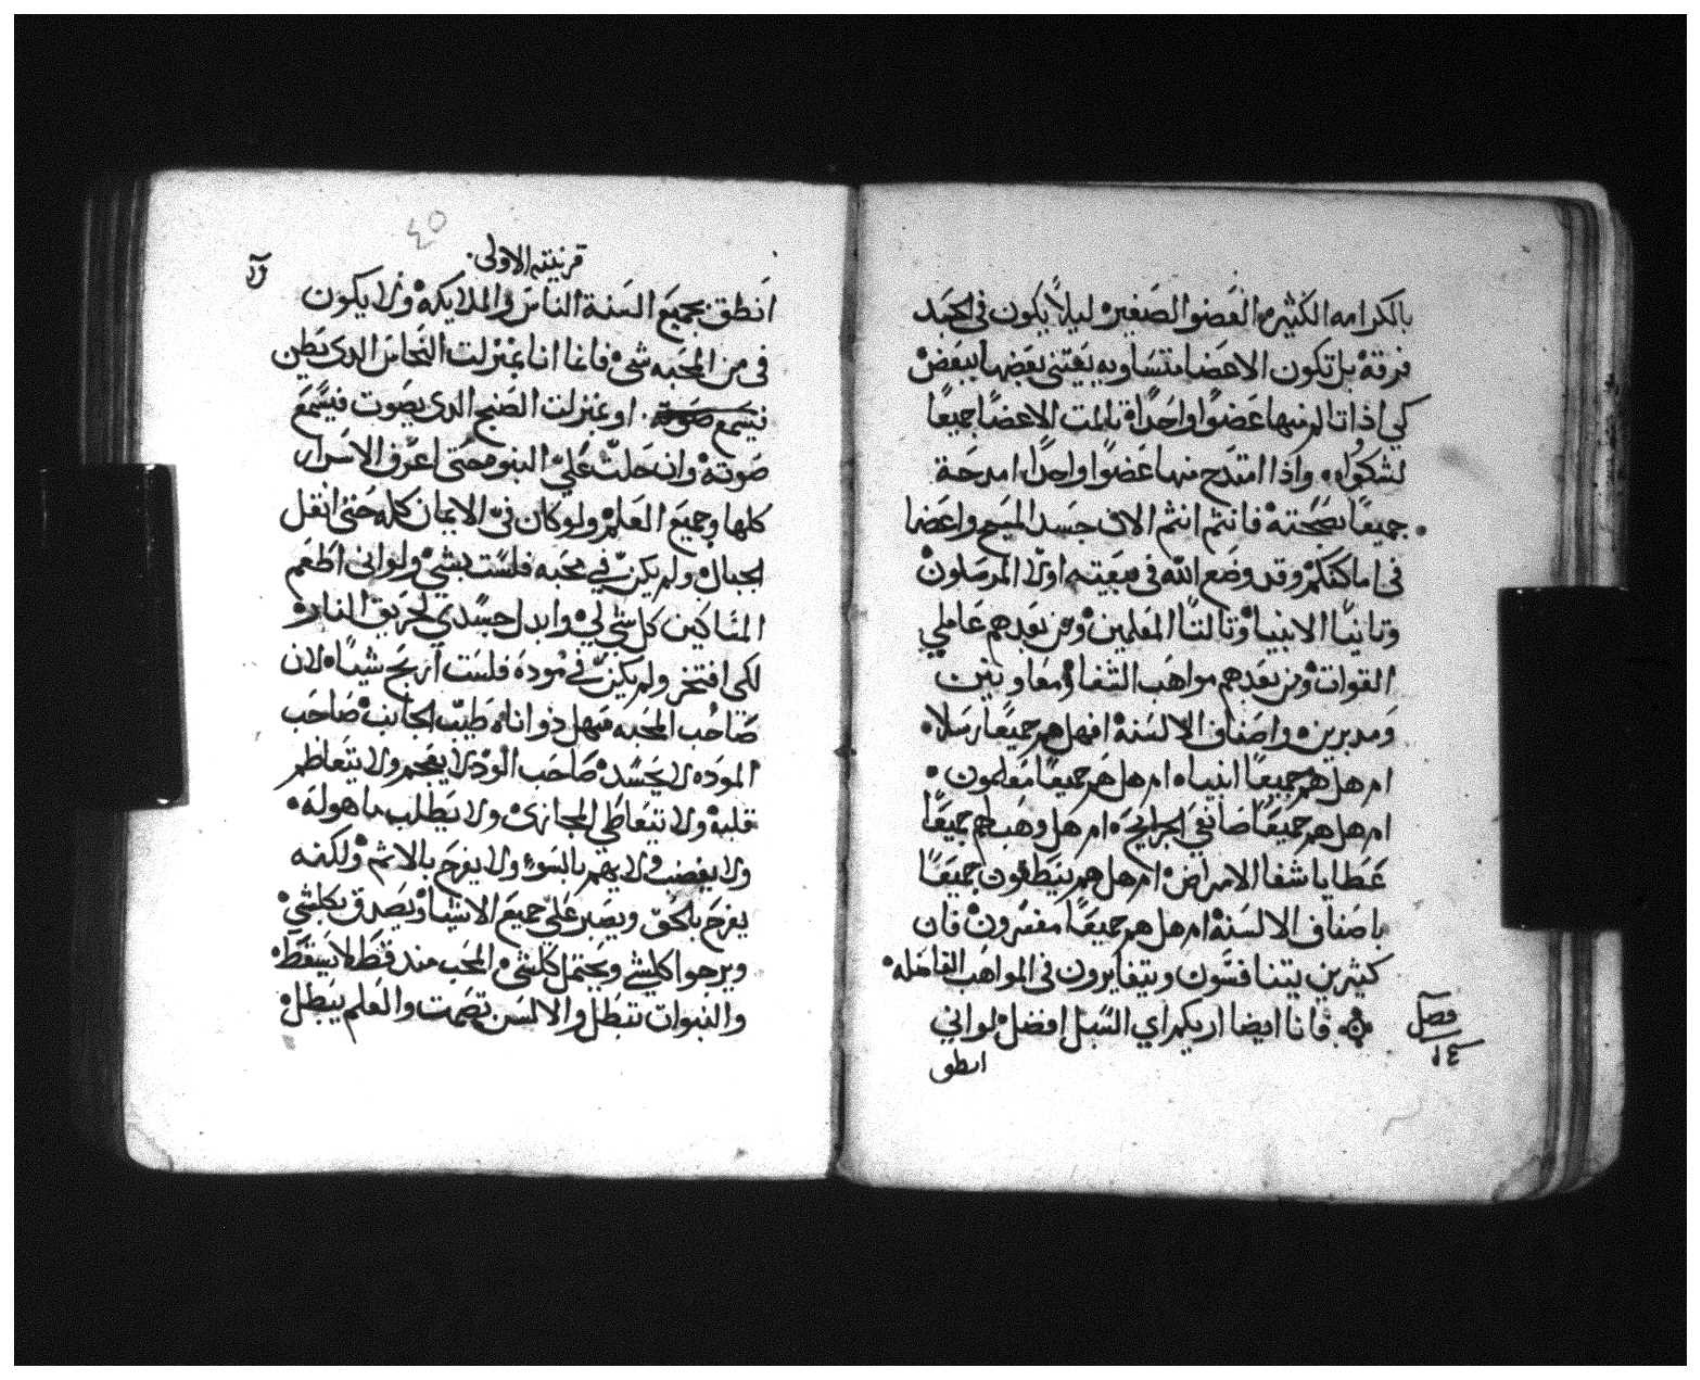 بالكرامه الكثيره العضو الصغير ليلًا يكون فى الجسد
فرقة بل تكون الاعضا متساويه يعتنى بعضها ببعض
كي اذا تالم منها عضوًا واحدًا تالمت الاعضا جميعًا
لشكواه واذا امتدح منها عضوًا واحدًا امدحة
جميعًا بصحته فانتم انتم الان جسد المسيح واعضا
فى اماكنكم وقد وضع الله فى بيعته اولا المرسلون
وتانيًا الانبيا وتالتًا المعلمين ومن بعدهم عاملي
القوات ومن بعدهم مواهب الشفا ومعاونين
ومدبرين واصناف الالسنة افهل هم جميعًا رسلا
ام هل هم جميعًا انبياه ام هل هم جميعًا معلمون
ام هل هم جميعًا صانعي الجرايح ام هل وهب لهم جميعًا
عطايا شفا الامراض ام هل هم ينطقون جميعًا
باصناف الالسنة ام هل هم جميعًا مفسرون فان
كثيرين يتنافسون ويتغايرون فى المواهب الفاضله
فانا ايضا اريكم اي السبل افضل لواني
فصل
١٤
انطق
٤٥
قرنتيه الاولى
انطق بجميع السنة الناس والملايكة ولا يكون
فى من المحبه شى فانما انا بمنزلت النحاس الدى يطن
فيسمع صوته او بمنزلت الصنج الدى يصوت فيسمع
صوته وان حلت على النبوه حتى اعرف الاسرار
كلها وجميع العلم ولو كان فى الايمان كله حتى انقل
الجبال ولم يكن في محبه فلست بشي ولوانى اطعم
المساكين كل شي لي وابدل جسدي لحريق النار
لكى افتخر ولم يكن في موده فلست اربح شيًا لان
صاحب المحبه مهل ذو اناه طيب الجانب صاحب
الموده لا يحسد صاحب الود لا يفجم ولا يتعاظم
قلبه ولا تتعاطي المجازى ولا يطلب ما هوله
ولا يغضب ولا يهم بالسو ولا يفرح بالاثم ولكنه
يفرح بالحق ويصبر على جميع الاشيا ويصدق بكلشي
ويرجوا كلشي ويحتمل كلشى المحب مند قط لا يسقط
والنبوات تبطل والالسن تصمت والعلم يبطل